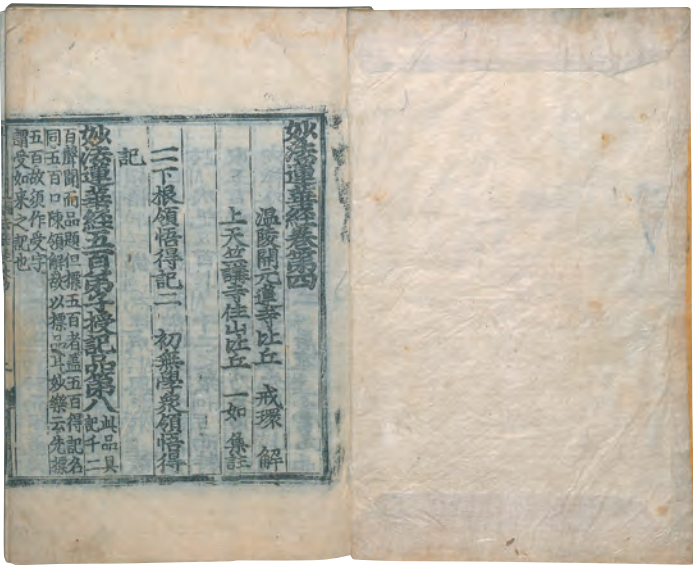 妙法蓮華經卷第四
溫陵開元蓮寺比丘 戒環 解
上天竺講寺住山比丘 一如 集註
二下根領悟得記二 初無學衆領悟得
記
妙法蓮華經五百弟子授記品第八 此品具記千二
百聲聞而品題但標五百者盖五百得記名
同五百口陳領解故以標品耳妙樂云先標
五百故須作受字
謂受如來之記也